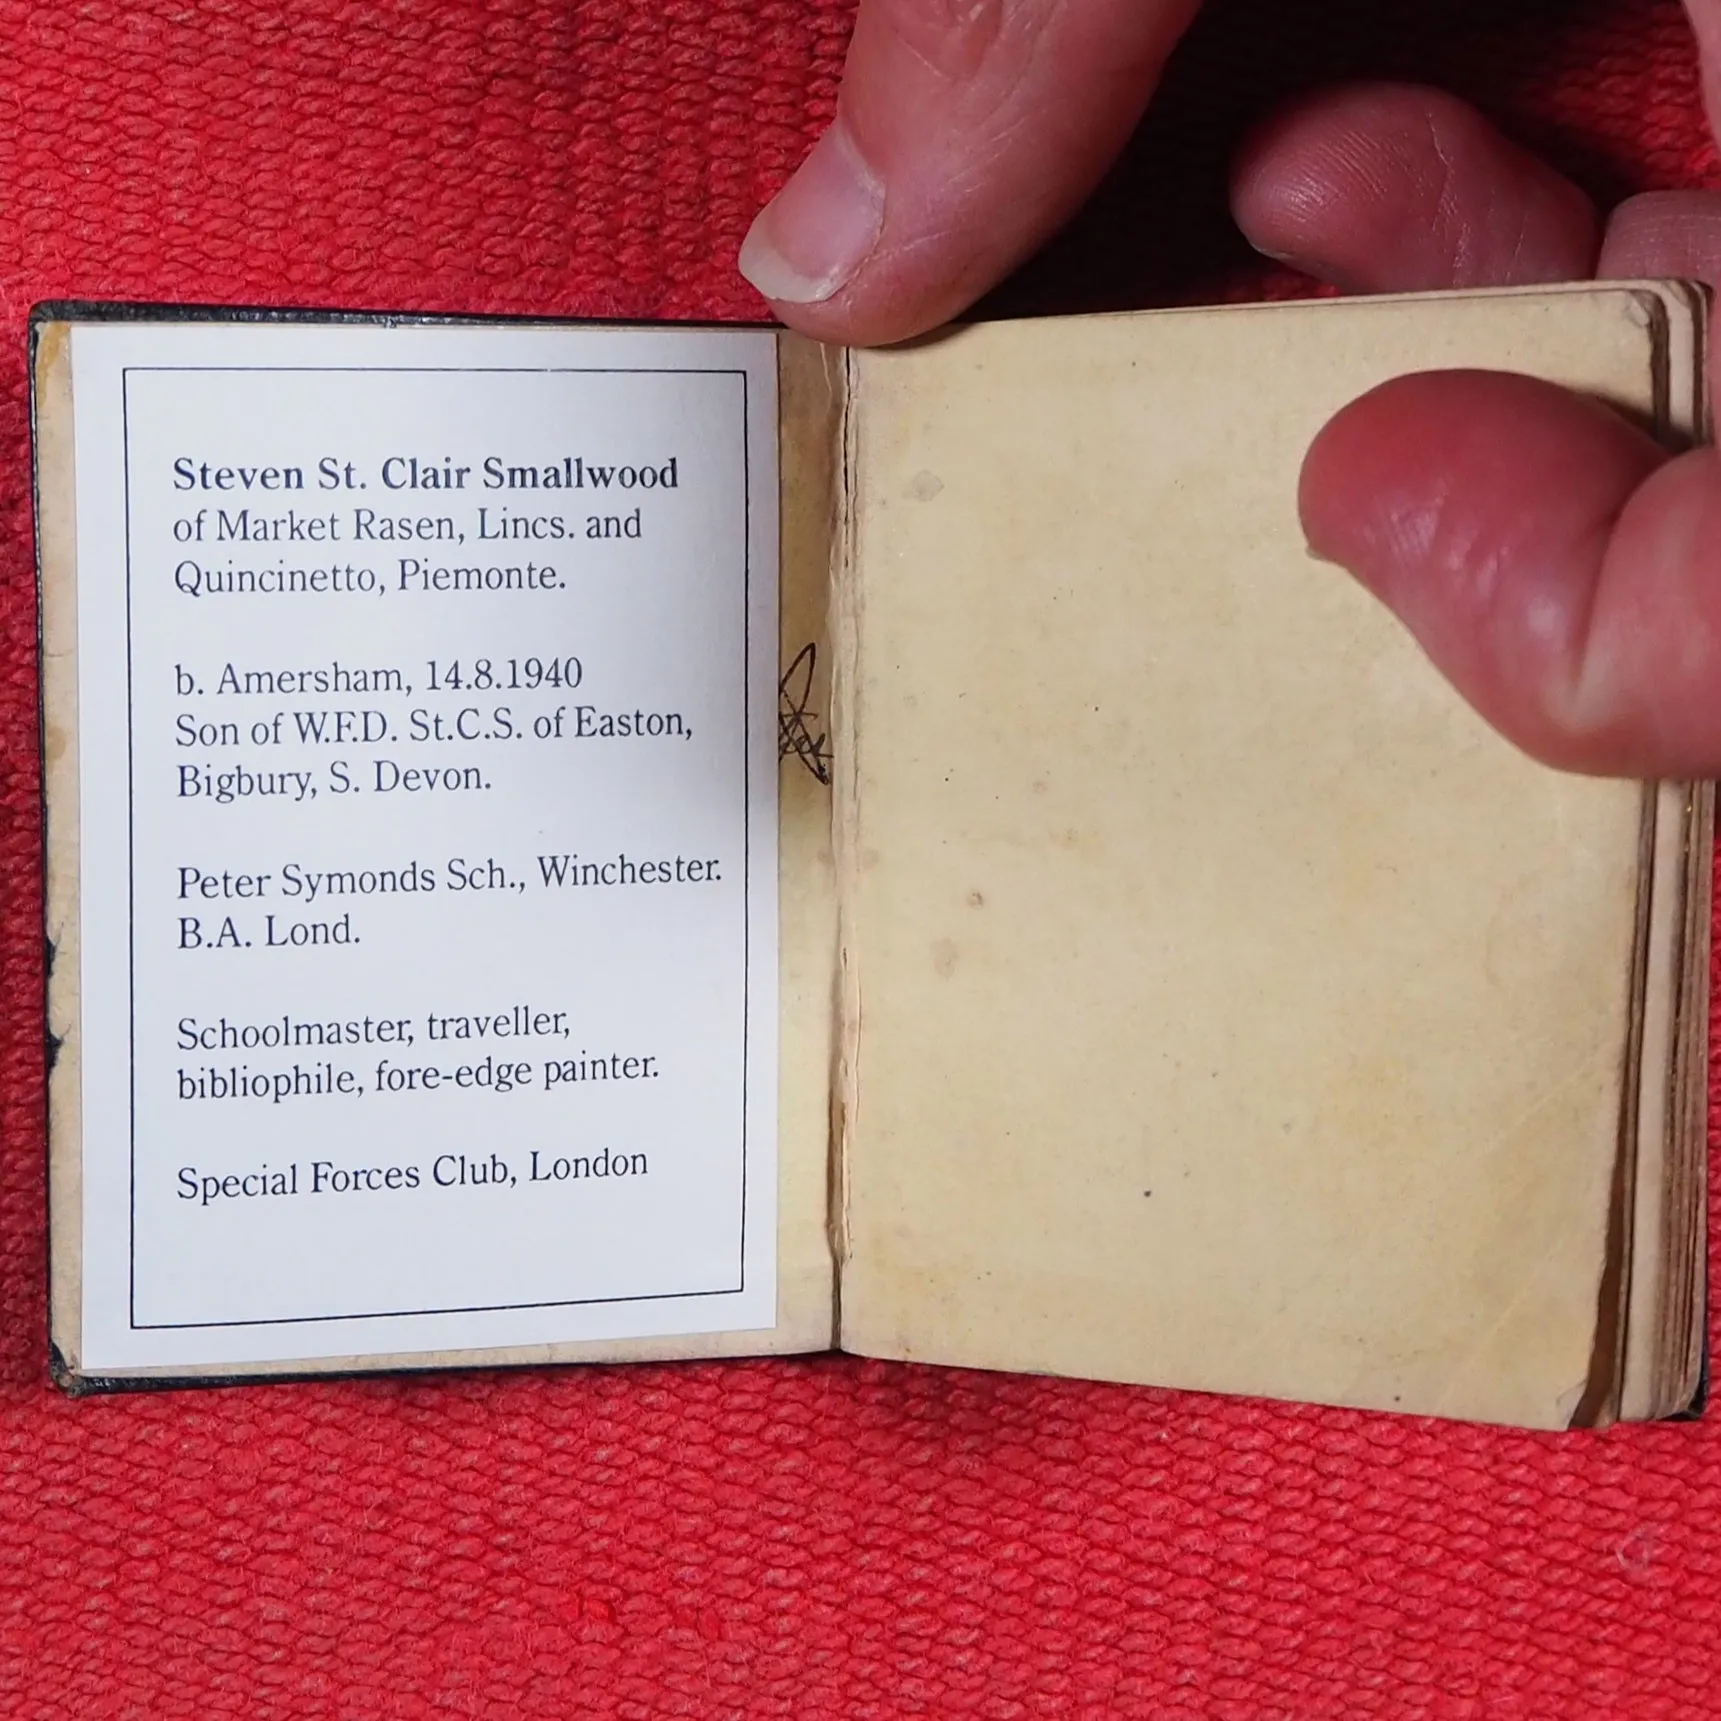 Steven St. Clair Smallwood
of Market Rasen, Lincs. and
Quincinetto, Piemonte.
b. Amersham, 14.8.1940
Son of W.F.D. St.C.S. of Easton,
Bigbury, S. Devon.
Peter Symonds Sch., Winchester.
B.A. Lond.
Schoolmaster, traveller,
bibliophile, fore-edge painter.
Special Forces Club, London